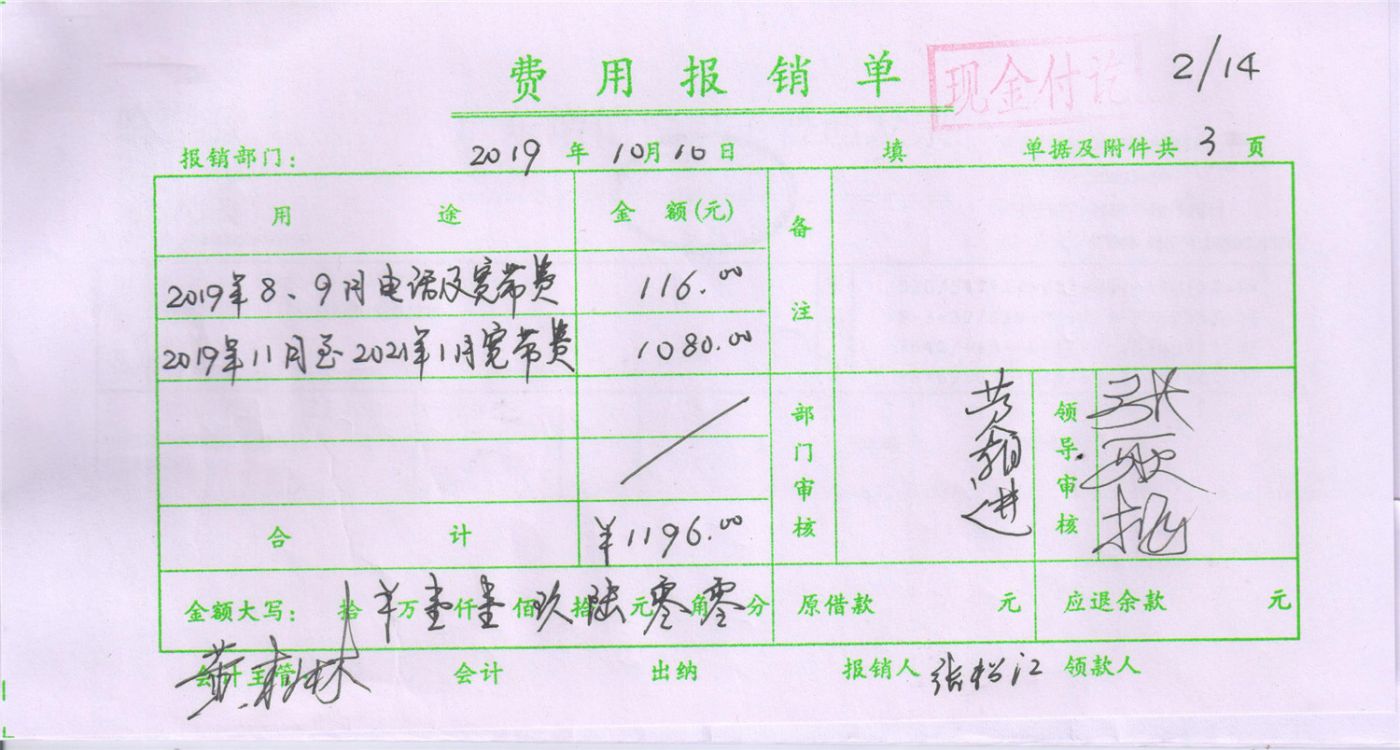 费用报销单 现金付讫 2/14
报销部门： 2019年10月10日 填 单据及附件共3页
用途 金额(元) 备注
2019年8、9月电话及宽带费 116.00
2019年11月至2021年1月宽带费 1080.00
部门审核 领导审核 张
合计 ¥1196.00
金额大写： 拾¥万壹仟壹佰玖拾陆元零角零分 原借款 元 应退余款 元
会计主管 黄 林 会计 出纳 报销人 张松江 领款人